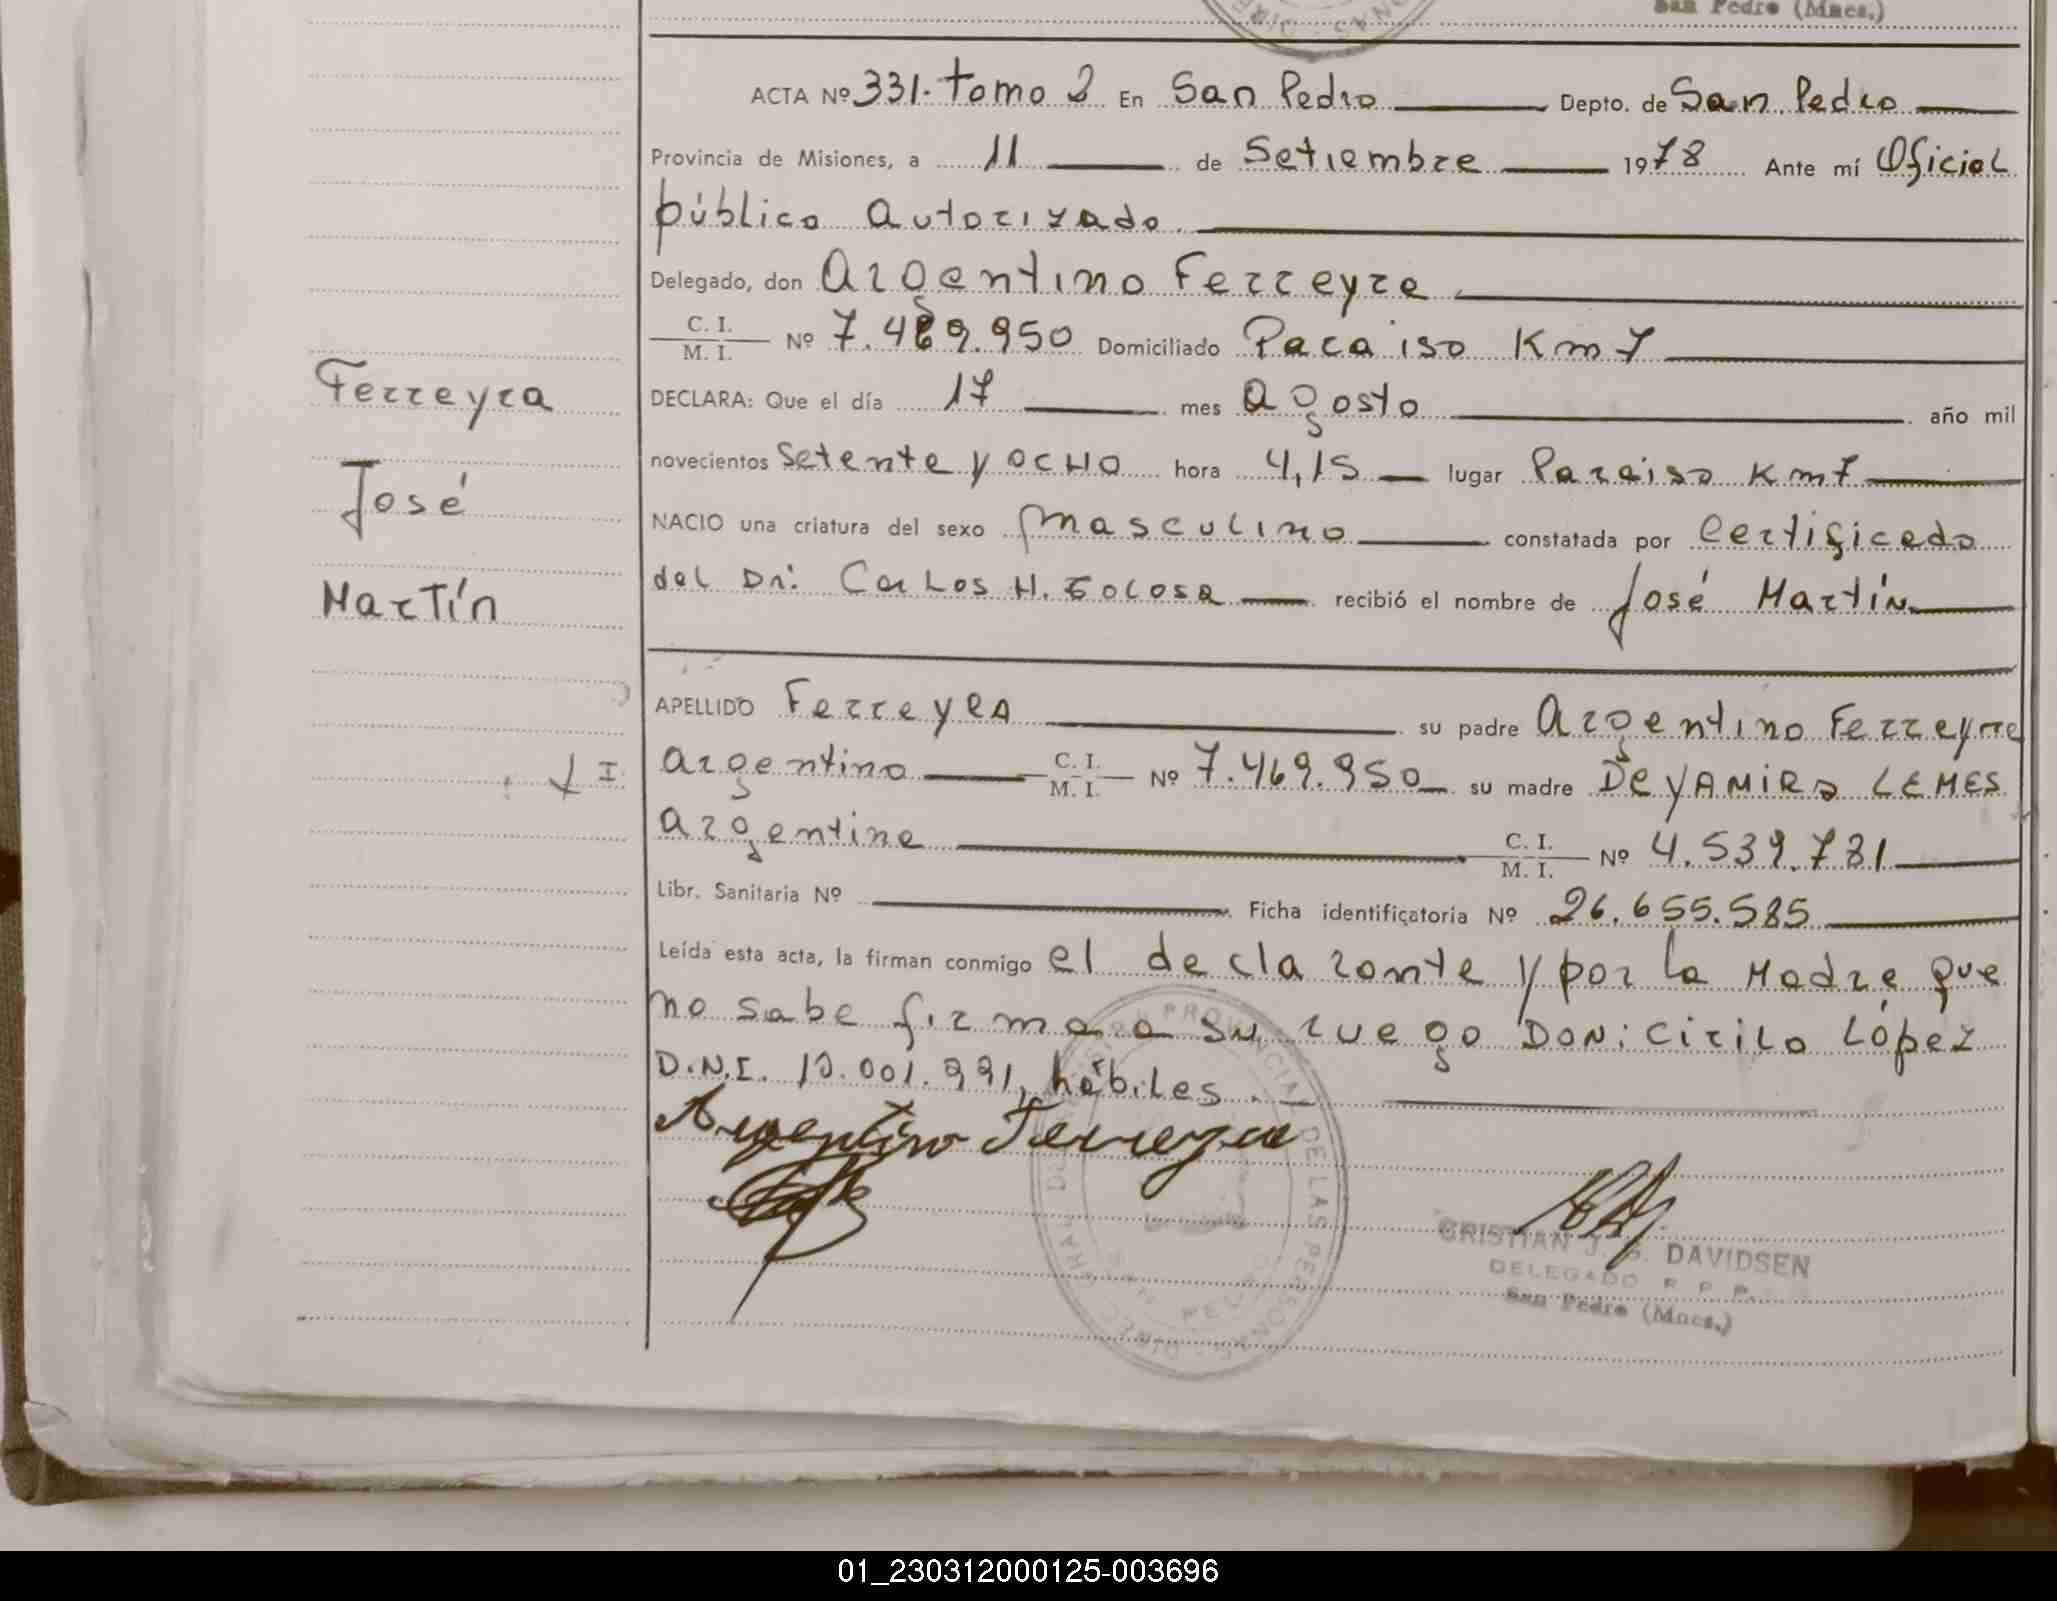 San Pedro (Mnes.)
ACTA Nº 331. tomo 2 En San Pedro Depto. de San Pedro
Provincia de Misiones, a 11 de Setiembre 1978 Ante mí Oficial
público autorizado
Delegado, don Argentino Ferreyra
C. I.
M. I. Nº 7.469.950 Domiciliado Paraiso Km 7
DECLARA: Que el día 17 mes agosto año mil
Ferreyra
novecientos setenta y ocho hora 4,15 lugar Paraiso Km 7
José
NACIO una criatura del sexo masculino constatada por Certificado
del Dr. Carlos H. recibió el nombre de José Martín
Martín
APELLIDO Ferreyra su padre Argentino Ferreyra
I. argentino C. I. M. I. Nº 7.469.950 su madre DEYAMIRA LEMES
argentina C. I. M. I. Nº 4.539.731
Libr. Sanitaria Nº Ficha identificatoria Nº 26.655.585
Leída esta acta, la firman conmigo el declarante y por la Madre que
no sabe firmar a su ruego Don: Cirilo López
D.N.I. 10.001.991, hábiles.-
Argentino Ferreyra
CRISTIAN J. G. DAVIDSEN
DELEGADO R. P. P.
San Pedro (Mnes.)
PROVINCIAL DE LAS PERSONAS
SAN PEDRO
01_230312000125-003696